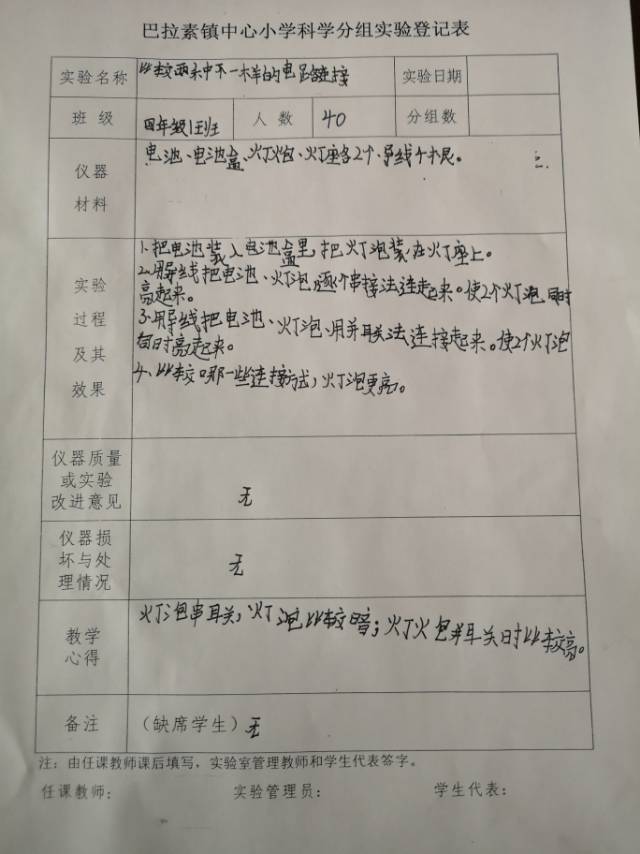 巴拉素镇中心小学科学分组实验登记表
实验名称 比较两未中不一样的电路链接 实验日期
班 级 四年级1班 人 数 40 分组数
仪器
材料
电池、电池盒、灯炮、灯座各2个、导线个十尺。
实验
过程
及其
效果
1.把电池装入电池盒里,把灯泡装在灯座上。
2.用导线把电池、灯泡逐个串接法连起来。使2个灯泡同时
亮起来。
3.用导线把电池、灯泡、用并联法连接起来。使2个灯泡
同时亮起来。
4、比较哪一些连接方式,灯泡更亮。
仪器质量
或实验
改进意见
无
仪器损
坏与处
理情况
无
教学
心得
灯泡串联,灯泡比较暗;灯炮并联时比较亮。
备注 (缺席学生)无
注:由任课教师课后填写,实验室管理教师和学生代表签字。
任课教师: 实验管理员: 学生代表: